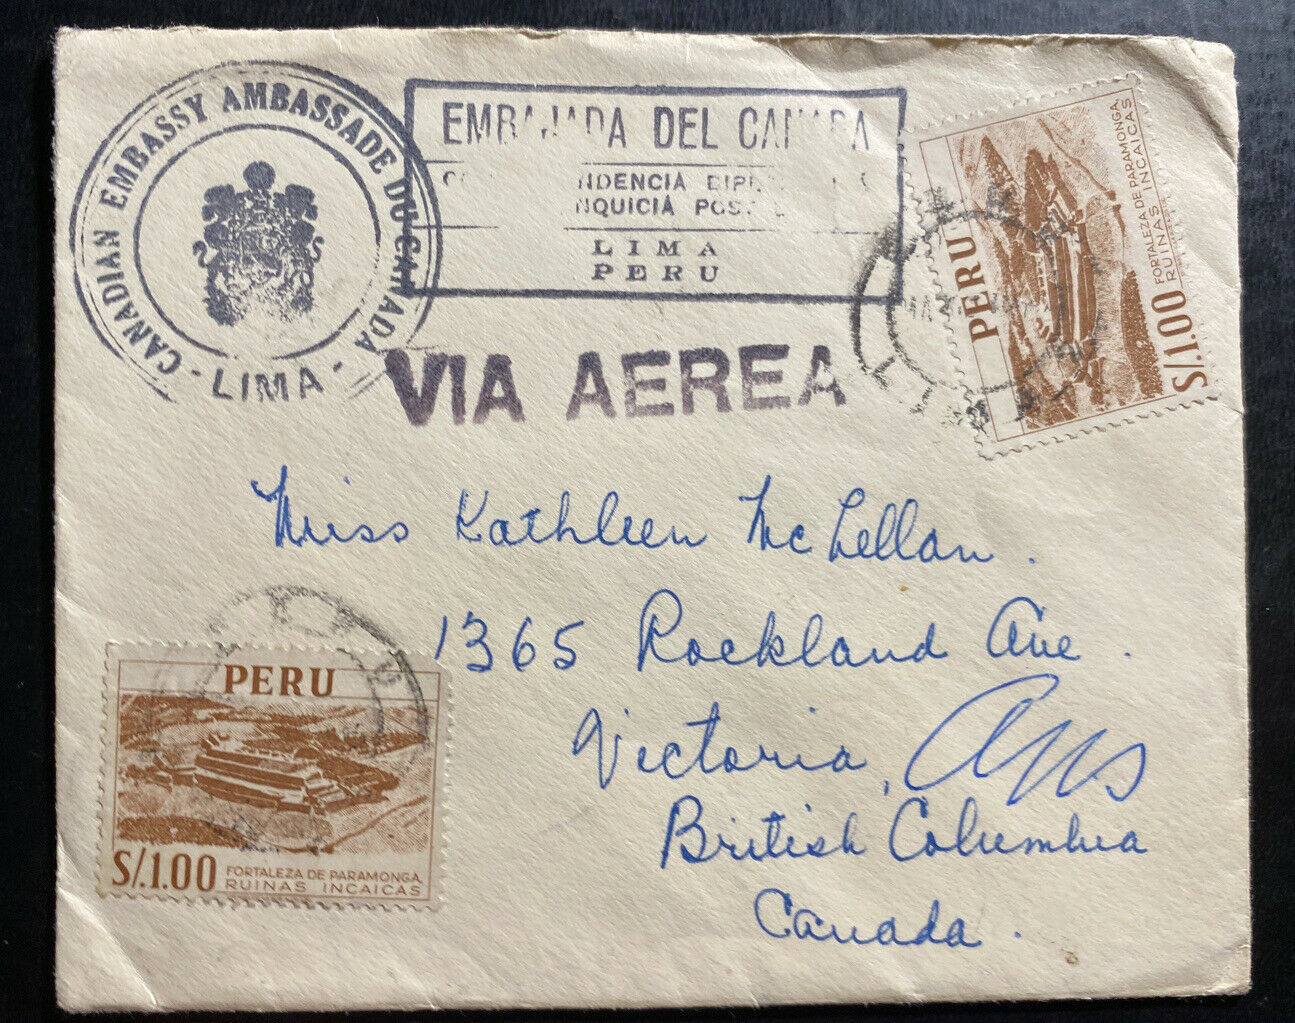 CANADIAN EMBASSY AMBASSADE DU CANADA
- LIMA -
EMBAJADA DEL CANADA
LIMA
PERU
VIA AEREA
PERU
S/.1.00
FORTALEZA DE PARAMONGA
RUINAS INCAICAS
Miss Kathleen McLellan.
1365 Rockland Ave.
Victoria,
British Columbia
Canada.
PERU
S/.1.00 FORTALEZA DE PARAMONGA
RUINAS INCAICAS